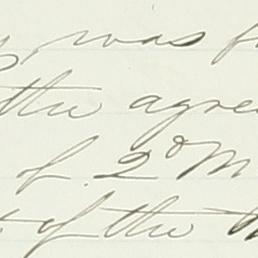 was
the agree
of 2º M
of the